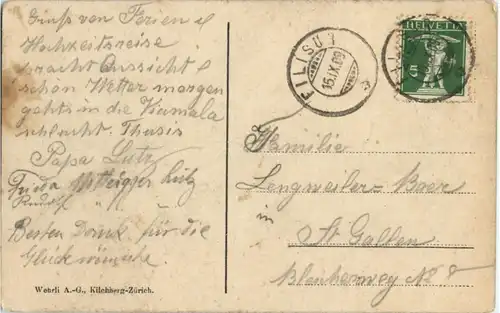 Gruss von Ferien &
Hochzeitsreise
pracht Aussicht &
schön Wetter morgen
gehts in die Viamala
schlucht. Thusis
Papa Lutz
Frida Lutz
Rudolf " "
Besten Dank für die
Glückwünsche.
Wehrli A.-G., Kilchberg-Zürich.
FILISUR
15.IX.09
HELVETIA
5
Familie
Lengweiler-Baer
in
St. Gallen
Bleicherweg No 8